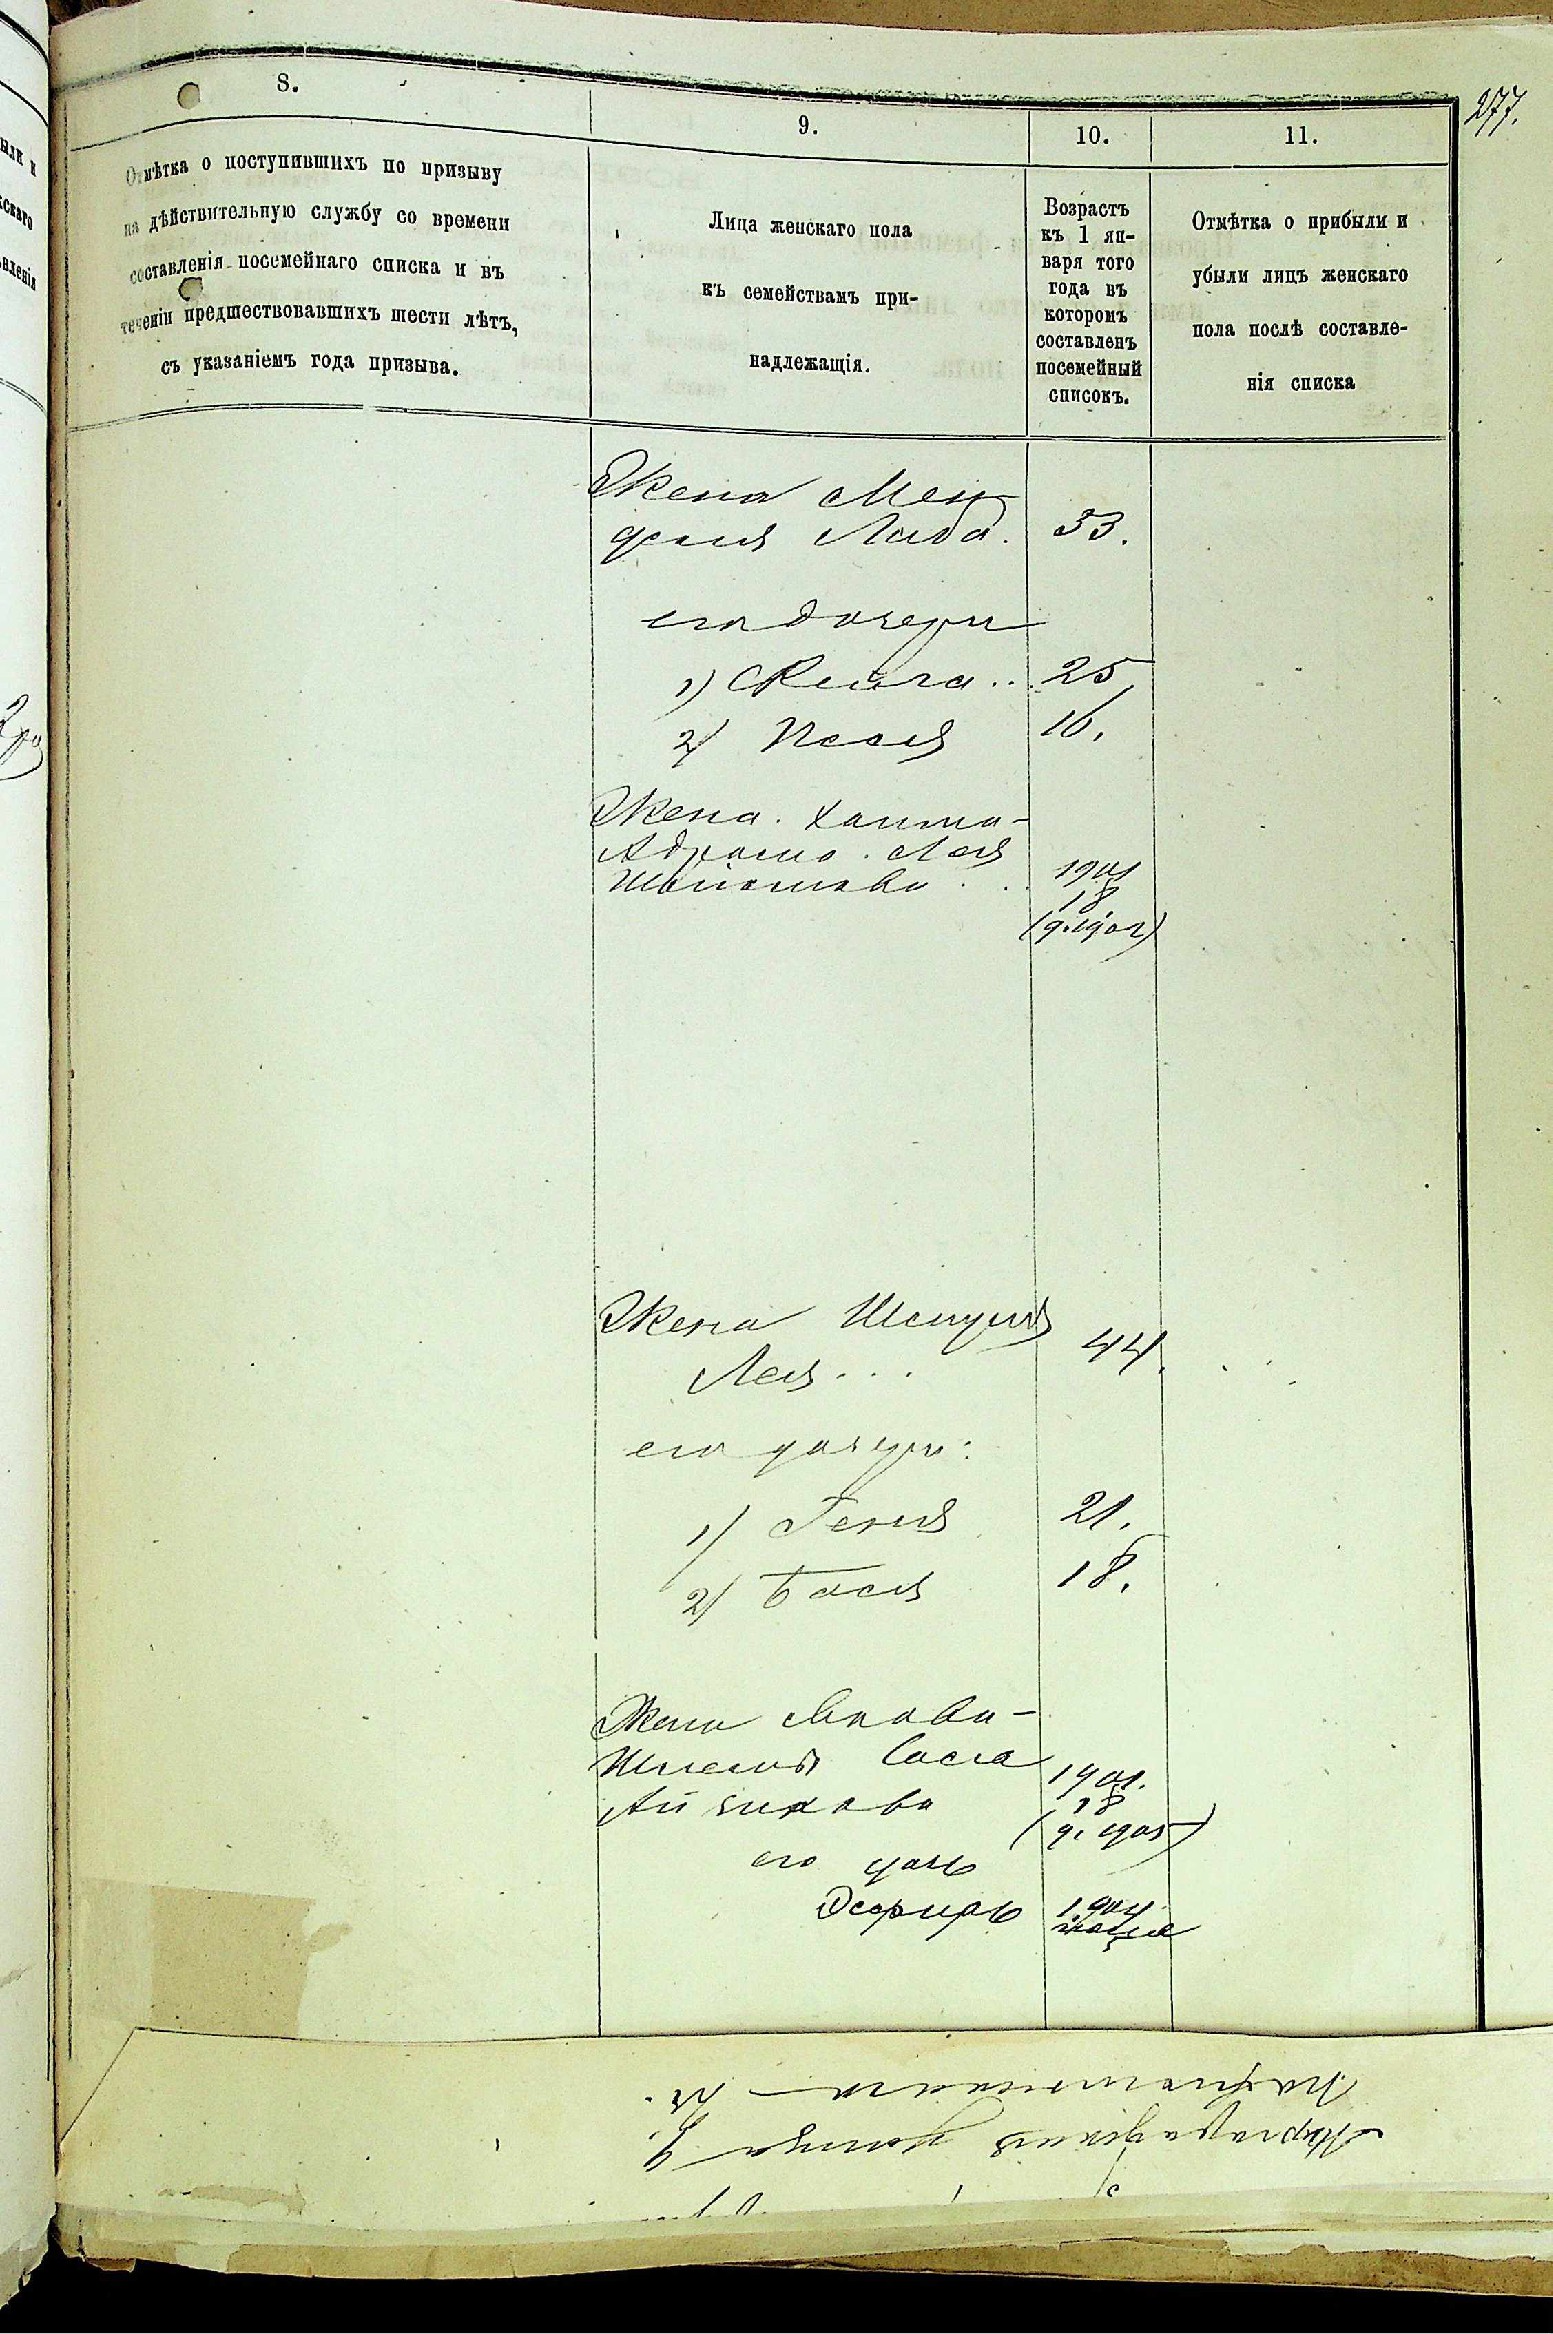 277.
8.
9.
10.
11.
Отмѣтка о поступившихъ по призыву
на дѣйствительную службу со времени
составленія посемейнаго списка и въ
теченіи предшествовавшихъ шести лѣтъ,
съ указаніемъ года призыва.
Лица женскаго пола
къ семействамъ при-
надлежащія.
Возрастъ
къ 1 ян-
варя того
года въ
которомъ
составленъ
посемейный
списокъ.
Отмѣтка о прибыли и
убыли лицъ женскаго
пола послѣ составле-
нія списка
Жена Мен-
деля Либа. 33.
его дочери
1) Рейга .. 25
2) Песля 16.
Жена Хаима-
Абрама Лея
1901
18
Жена Шепселя 44.
Лея ...
его дочери:
1) Геня 21.
2) Бася 18.
Жена
Шлемы Сося 1901.
Айзикова 18
его дочь
Эсфирь 1904